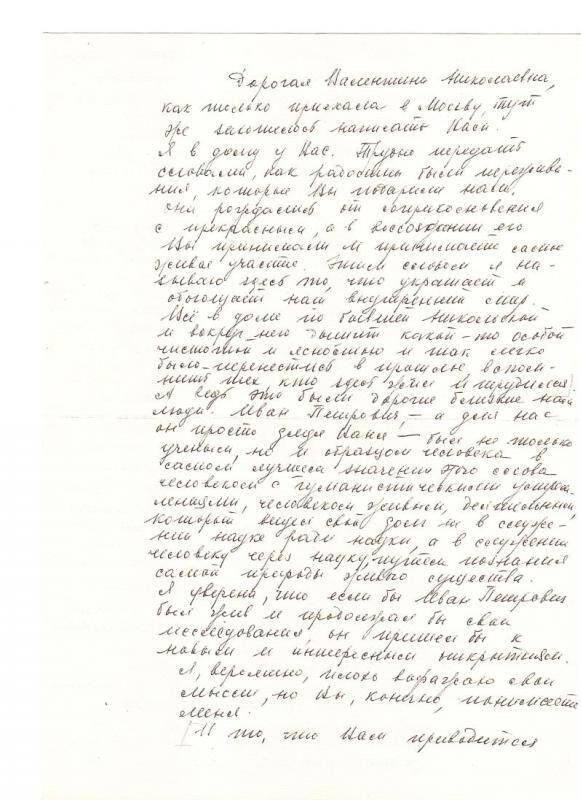 Дорогая Валентина Николаевна,
как только приехала в Москву, тут
же захотелось написать Вам.
Я в долгу у Вас. Трудно передать
словами, как радостны были пережива-
ния, которые Вы подарили нам.
Они рождались от соприкосновения
с прекрасным, а в воссоздании его
Вы принимали и принимаете самое
живое участие. Этим словом я на-
зываю здесь то, что украшает и
обогащает наш внутренний мир.
Всё в доме по бывшей Никольской
и вокруг него дышит какой-то особой
чистотой и ясностью и так легко
было перенестись в прошлое, вспом-
нить тех, кто здесь жил и трудился.
А ведь это были дорогие близкие нам
люди. Иван Петрович, — а для нас
он просто дядя Ваня — был не только
ученым, но и образцом человека в
самом лучшем значении этого слова
человеком с гуманистическими
человеком живым, деятельным,
который видел свой долг не в служе-
нии науке ради науки, а в служении
человеку через науку, путем познания
самой природы живого существа.
Я уверена, что если бы Иван Петрович
был жив и продолжал бы свои
исследования, он пришел бы к
новым и интересным открытиям.
Я, вероятно, плохо выражаю свои
мысли, но Вы, конечно, понимаете
меня.
И то, что Вам приводится